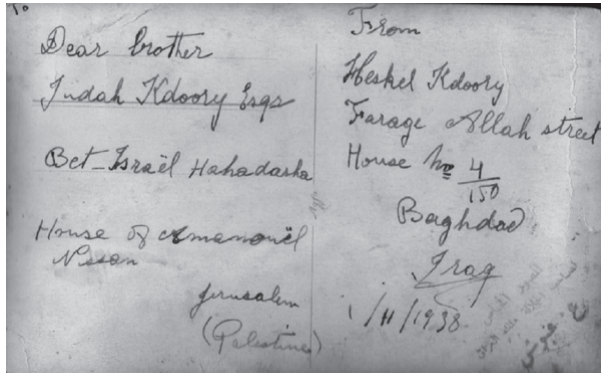 To
Dear brother
Judah Kdoory Esqs
Bet-Israël Hahadasha
House of Emanouël
Nissan
Jerusalem
(Palestine)
From
Heskel Kdoory
Farage Allah street
House No 4/150
Baghdad
Iraq
1/11/1938